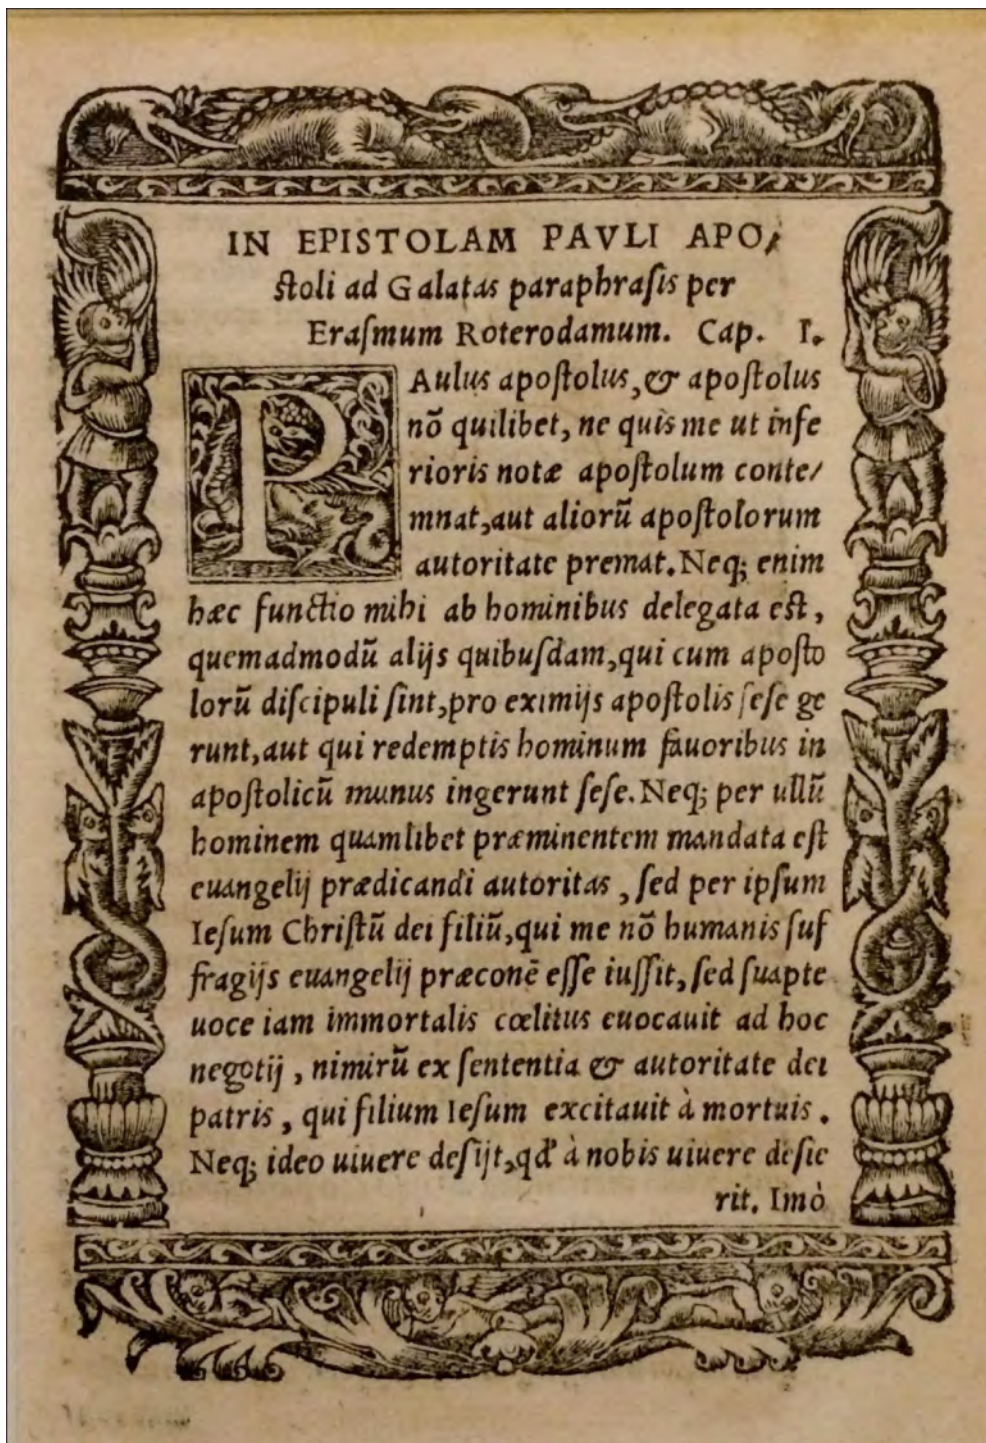 IN EPISTOLAM PAVLI APO/
ſtoli ad Galatas paraphraſis per
Eraſmum Roterodamum. Cap. I.
PAulus apoſtolus, & apoſtolus
nō quilibet, ne quis me ut infe
rioris notæ apoſtolum conte/
mnat, aut aliorū apoſtolorum
autoritate premat. Neq; enim
hæc functio mihi ab hominibus delegata eſt,
quemadmodū alijs quibuſdam, qui cum apoſto
lorū diſcipuli ſint, pro eximijs apoſtolis ſeſe ge
runt, aut qui redemptis hominum fauoribus in
apoſtolicū munus ingerunt ſeſe. Neq; per ullū
hominem quamlibet præminentem mandata eſt
euangelij prædicandi autoritas, ſed per ipſum
Ieſum Chriſtū dei filiū, qui me nō humanis ſuf
fragijs euangelij præconē eſſe iuſſit, ſed ſuapte
uoce iam immortalis cœlitus euocauit ad hoc
negotij, nimirū ex ſententia & autoritate dei
patris, qui filium Ieſum excitauit à mortuis.
Neq; ideo uiuere deſijt, qđ à nobis uiuere deſie
rit. Imò